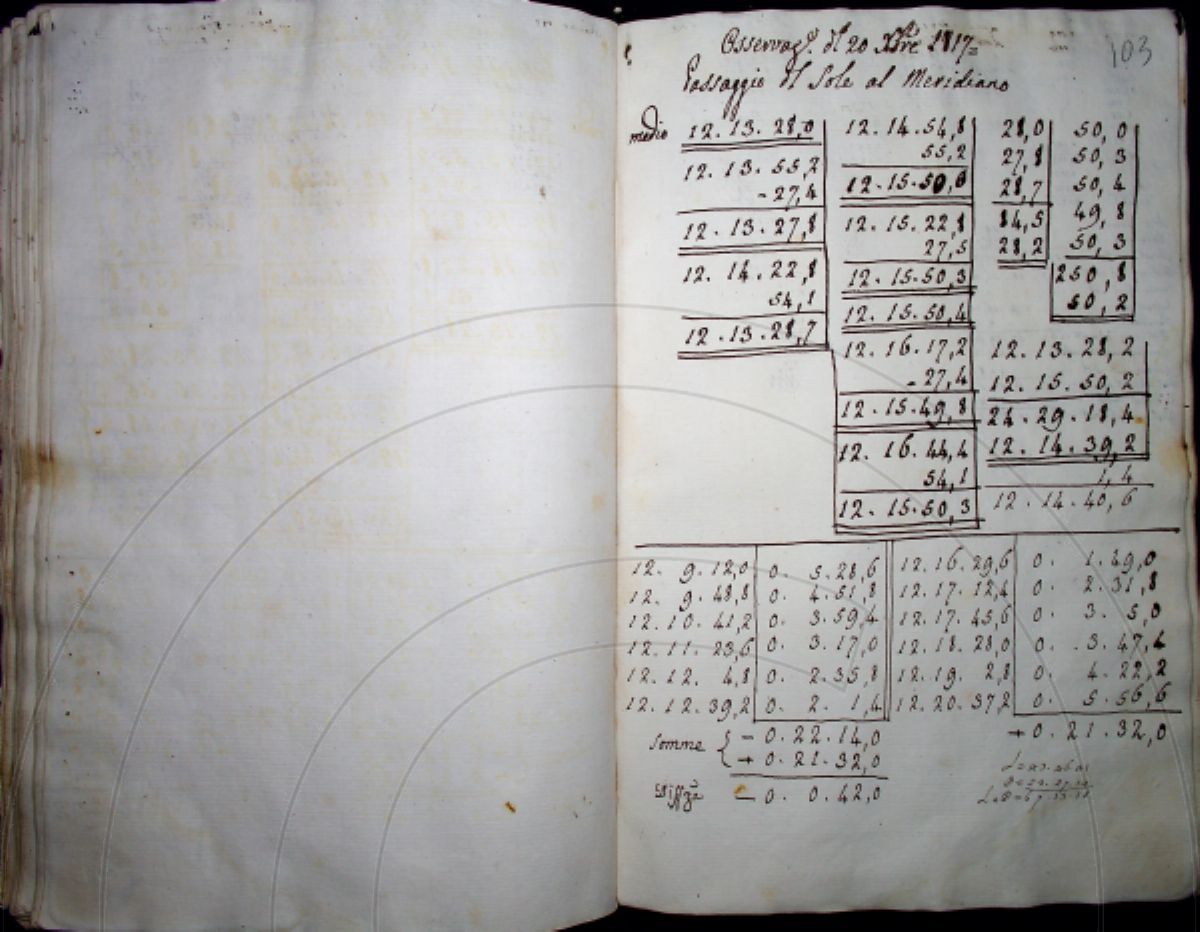 103
Osservaz.e del 20 Xbre 1817=
Passaggio del Sole al Meridiano
medio 12. 13. 28,0
12. 13. 55,2
- 27,4
12. 13. 27,8
12. 14. 22,8
54,1
12. 13. 28,7
12. 14. 54,8
55,2
12. 15. 50,0
12. 15. 22,8
27,5
12. 15. 50,3
12. 15. 50,4
12. 16. 17,2
- 27,4
12. 15. 49,8
12. 16. 44,4
54,1
12. 15. 50,3
28,0
27,8
28,7
84,5
28,2
50,0
50,3
50,4
49,8
50,3
250,8
50,2
12. 13. 28,2
12. 15. 50,2
24. 29. 18,4
12. 14. 39,2
1,4
12. 14. 40,6
12. 9. 12,0 0. 5. 28,6 12. 16. 29,6 0. 1. 49,0
12. 9. 48,8 0. 4. 51,8 12. 17. 12,4 0. 2. 31,8
12. 10. 41,2 0. 3. 59,4 12. 17. 45,6 0. 3. 5,0
12. 11. 23,6 0. 3. 17,0 12. 18. 28,0 0. 3. 47,4
12. 12. 4,8 0. 2. 35,8 12. 19. 2,8 0. 4. 22,2
12. 12. 39,2 0. 2. 1,4 12. 20. 37,2 0. 5. 56,6
Somme { - 0. 22. 14,0 + 0. 21. 32,0
+ 0. 21. 32,0
Diffza - 0. 0. 42,0